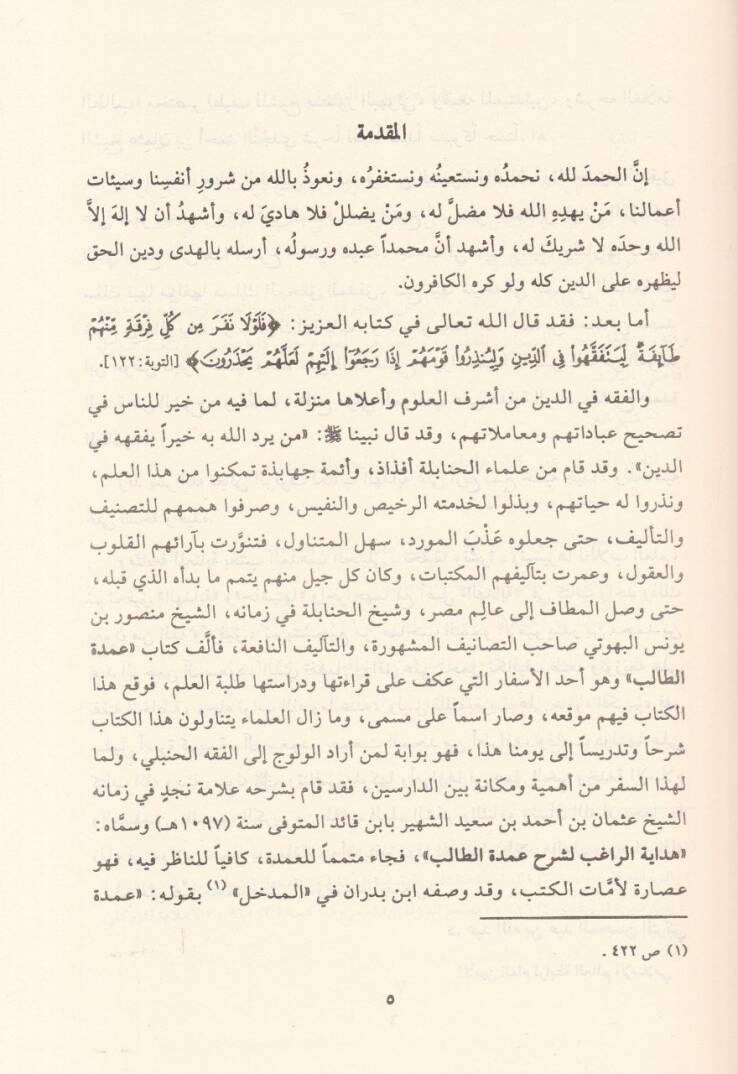 المقدمة
إنَّ الحمدَ لله، نحمدُه ونستعينُه ونستغفرُه، ونعوذُ بالله من شرورِ أنفسِنا وسيئات
أعمالنا، مَنْ يهدِهِ الله فلا مضلَّ له، ومَنْ يضللْ فلا هاديَ له، وأشهدُ أن لا إلهَ إلاَّ
الله وحدَه لا شريكَ له، وأشهد أنَّ محمداً عبده ورسولُه، أرسله بالهدى ودين الحق
ليظهره على الدين كله ولو كره الكافرون.
أما بعد: فقد قال الله تعالى في كتابه العزيز: ﴿فَلَوْلَا نَفَرَ مِن كُلِّ فِرْقَةٍ مِّنْهُمْ
طَآئِفَةٌ لِّيَتَفَقَّهُواْ فِي ٱلدِّينِ وَلِيُنذِرُواْ قَوْمَهُمْ إِذَا رَجَعُوٓاْ إِلَيْهِمْ لَعَلَّهُمْ يَحْذَرُونَ﴾ [التوبة: ١٢٢].
والفقه في الدين من أشرف العلوم وأعلاها منزلة، لما فيه من خير للناس في
تصحيح عباداتهم ومعاملاتهم، وقد قال نبينا ﷺ: «من يرد الله به خيراً يفقهه في
الدين». وقد قام من علماء الحنابلة أفذاذ، وأئمة جهابذة تمكنوا من هذا العلم،
ونذروا له حياتهم، وبذلوا لخدمته الرخيص والنفيس، وصرفوا هممهم للتصنيف
والتأليف، حتى جعلوه عَذْبَ المورد، سهل المتناول، فتنوَّرت بآرائهم القلوب
والعقول، وعمرت بتآليفهم المكتبات، وكان كل جيل منهم يتمم ما بدأه الذي قبله،
حتى وصل المطاف إلى عالِم مصر، وشيخ الحنابلة في زمانه، الشيخ منصور بن
يونس البهوتي صاحب التصانيف المشهورة، والتآليف النافعة، فألَّف كتاب «عمدة
الطالب» وهو أحد الأسفار التي عكف على قراءتها ودراستها طلبة العلم، فوقع هذا
الكتاب فيهم موقعه، وصار اسماً على مسمى، وما زال العلماء يتناولون هذا الكتاب
شرحاً وتدريساً إلى يومنا هذا، فهو بوابة لمن أراد الولوج إلى الفقه الحنبلي، ولما
لهذا السفر من أهمية ومكانة بين الدارسين، فقد قام بشرحه علامة نجدٍ في زمانه
الشيخ عثمان بن أحمد بن سعيد الشهير بابن قائد المتوفى سنة (١٠٩٧هـ) وسمَّاه:
«هداية الراغب لشرح عمدة الطالب»، فجاء متمماً للعمدة، كافياً للناظر فيه، فهو
عصارة لأمَّات الكتب، وقد وصفه ابن بدران في «المدخل» (١) بقوله: «عمدة
(١) ص ٤٢٢ .
٥